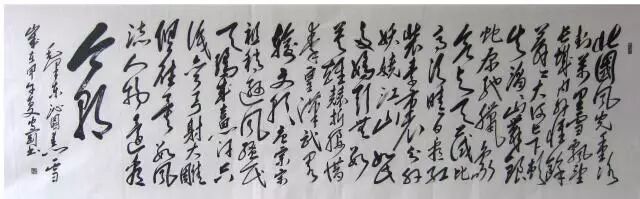 北國風光千里冰
封萬里雪飄望
長城內外惟餘
莽莽大河上下頓
失滔滔山舞銀
蛇原馳蠟象欲
與天公試比
高須晴日看紅
裝素裹分外
妖嬈江山如此
多嬌引無數
英雄競折腰惜
秦皇漢武略
輸文采唐宗宋
祖稍遜風騷一代
天驕成吉思汗只
識彎弓射大雕
俱往矣數風
流人物還看
今朝
毛澤東沁園春雪
歲在甲午夏